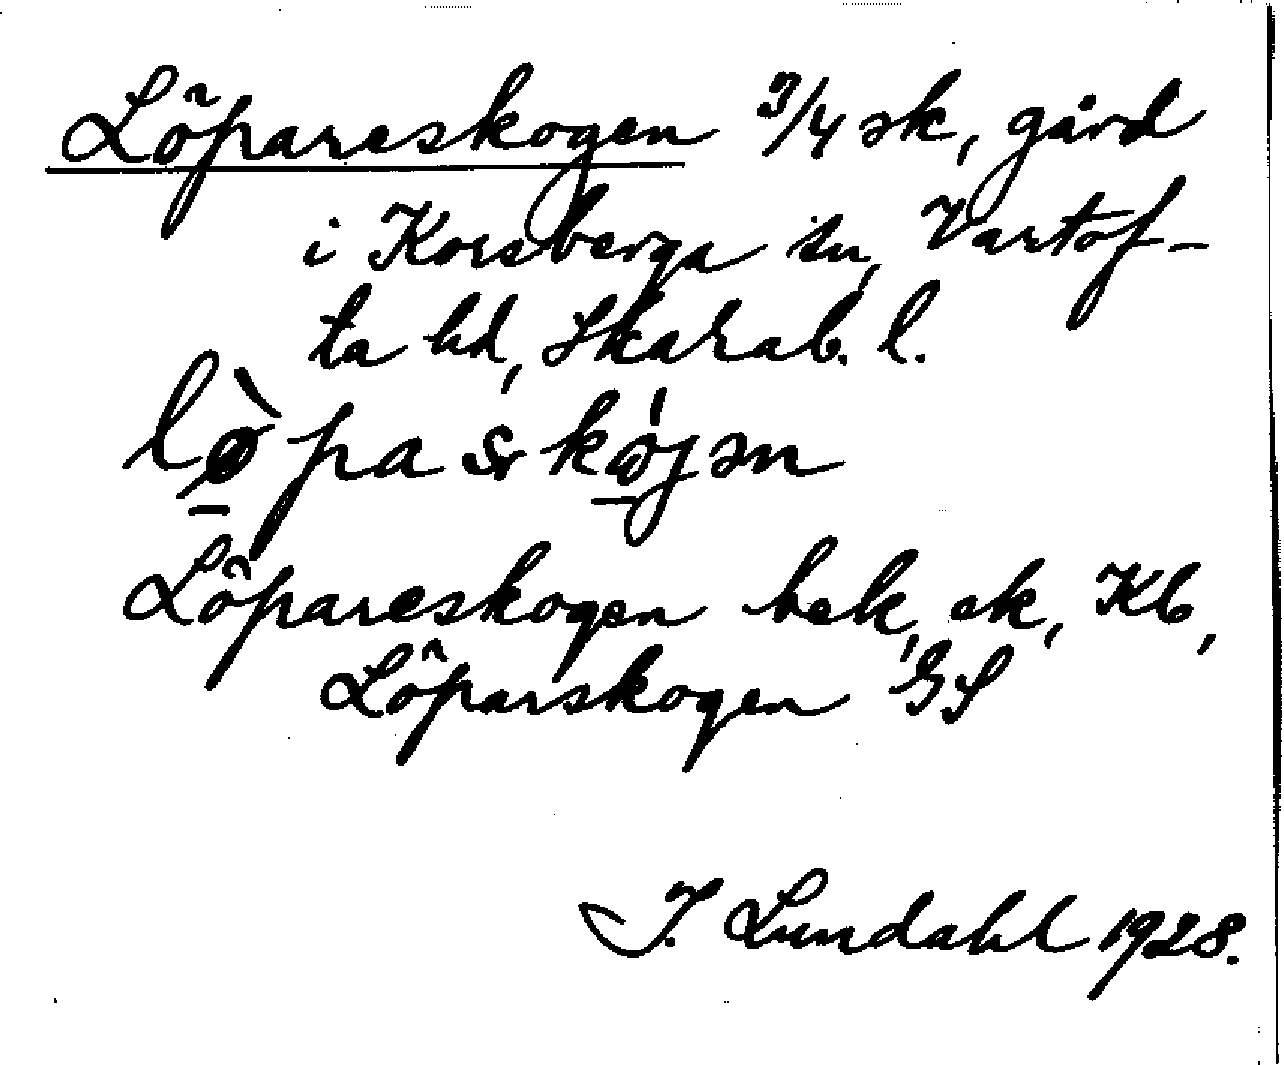 Löpareskogen 3/4 sk, gård
i Korsberga sn, Vartof-
ta hd, Skarab. l.
lø̀pasko̩jən
Löpareskogen bek, ek, Kb,
Löparskogen GS
I. Lundahl 1928.